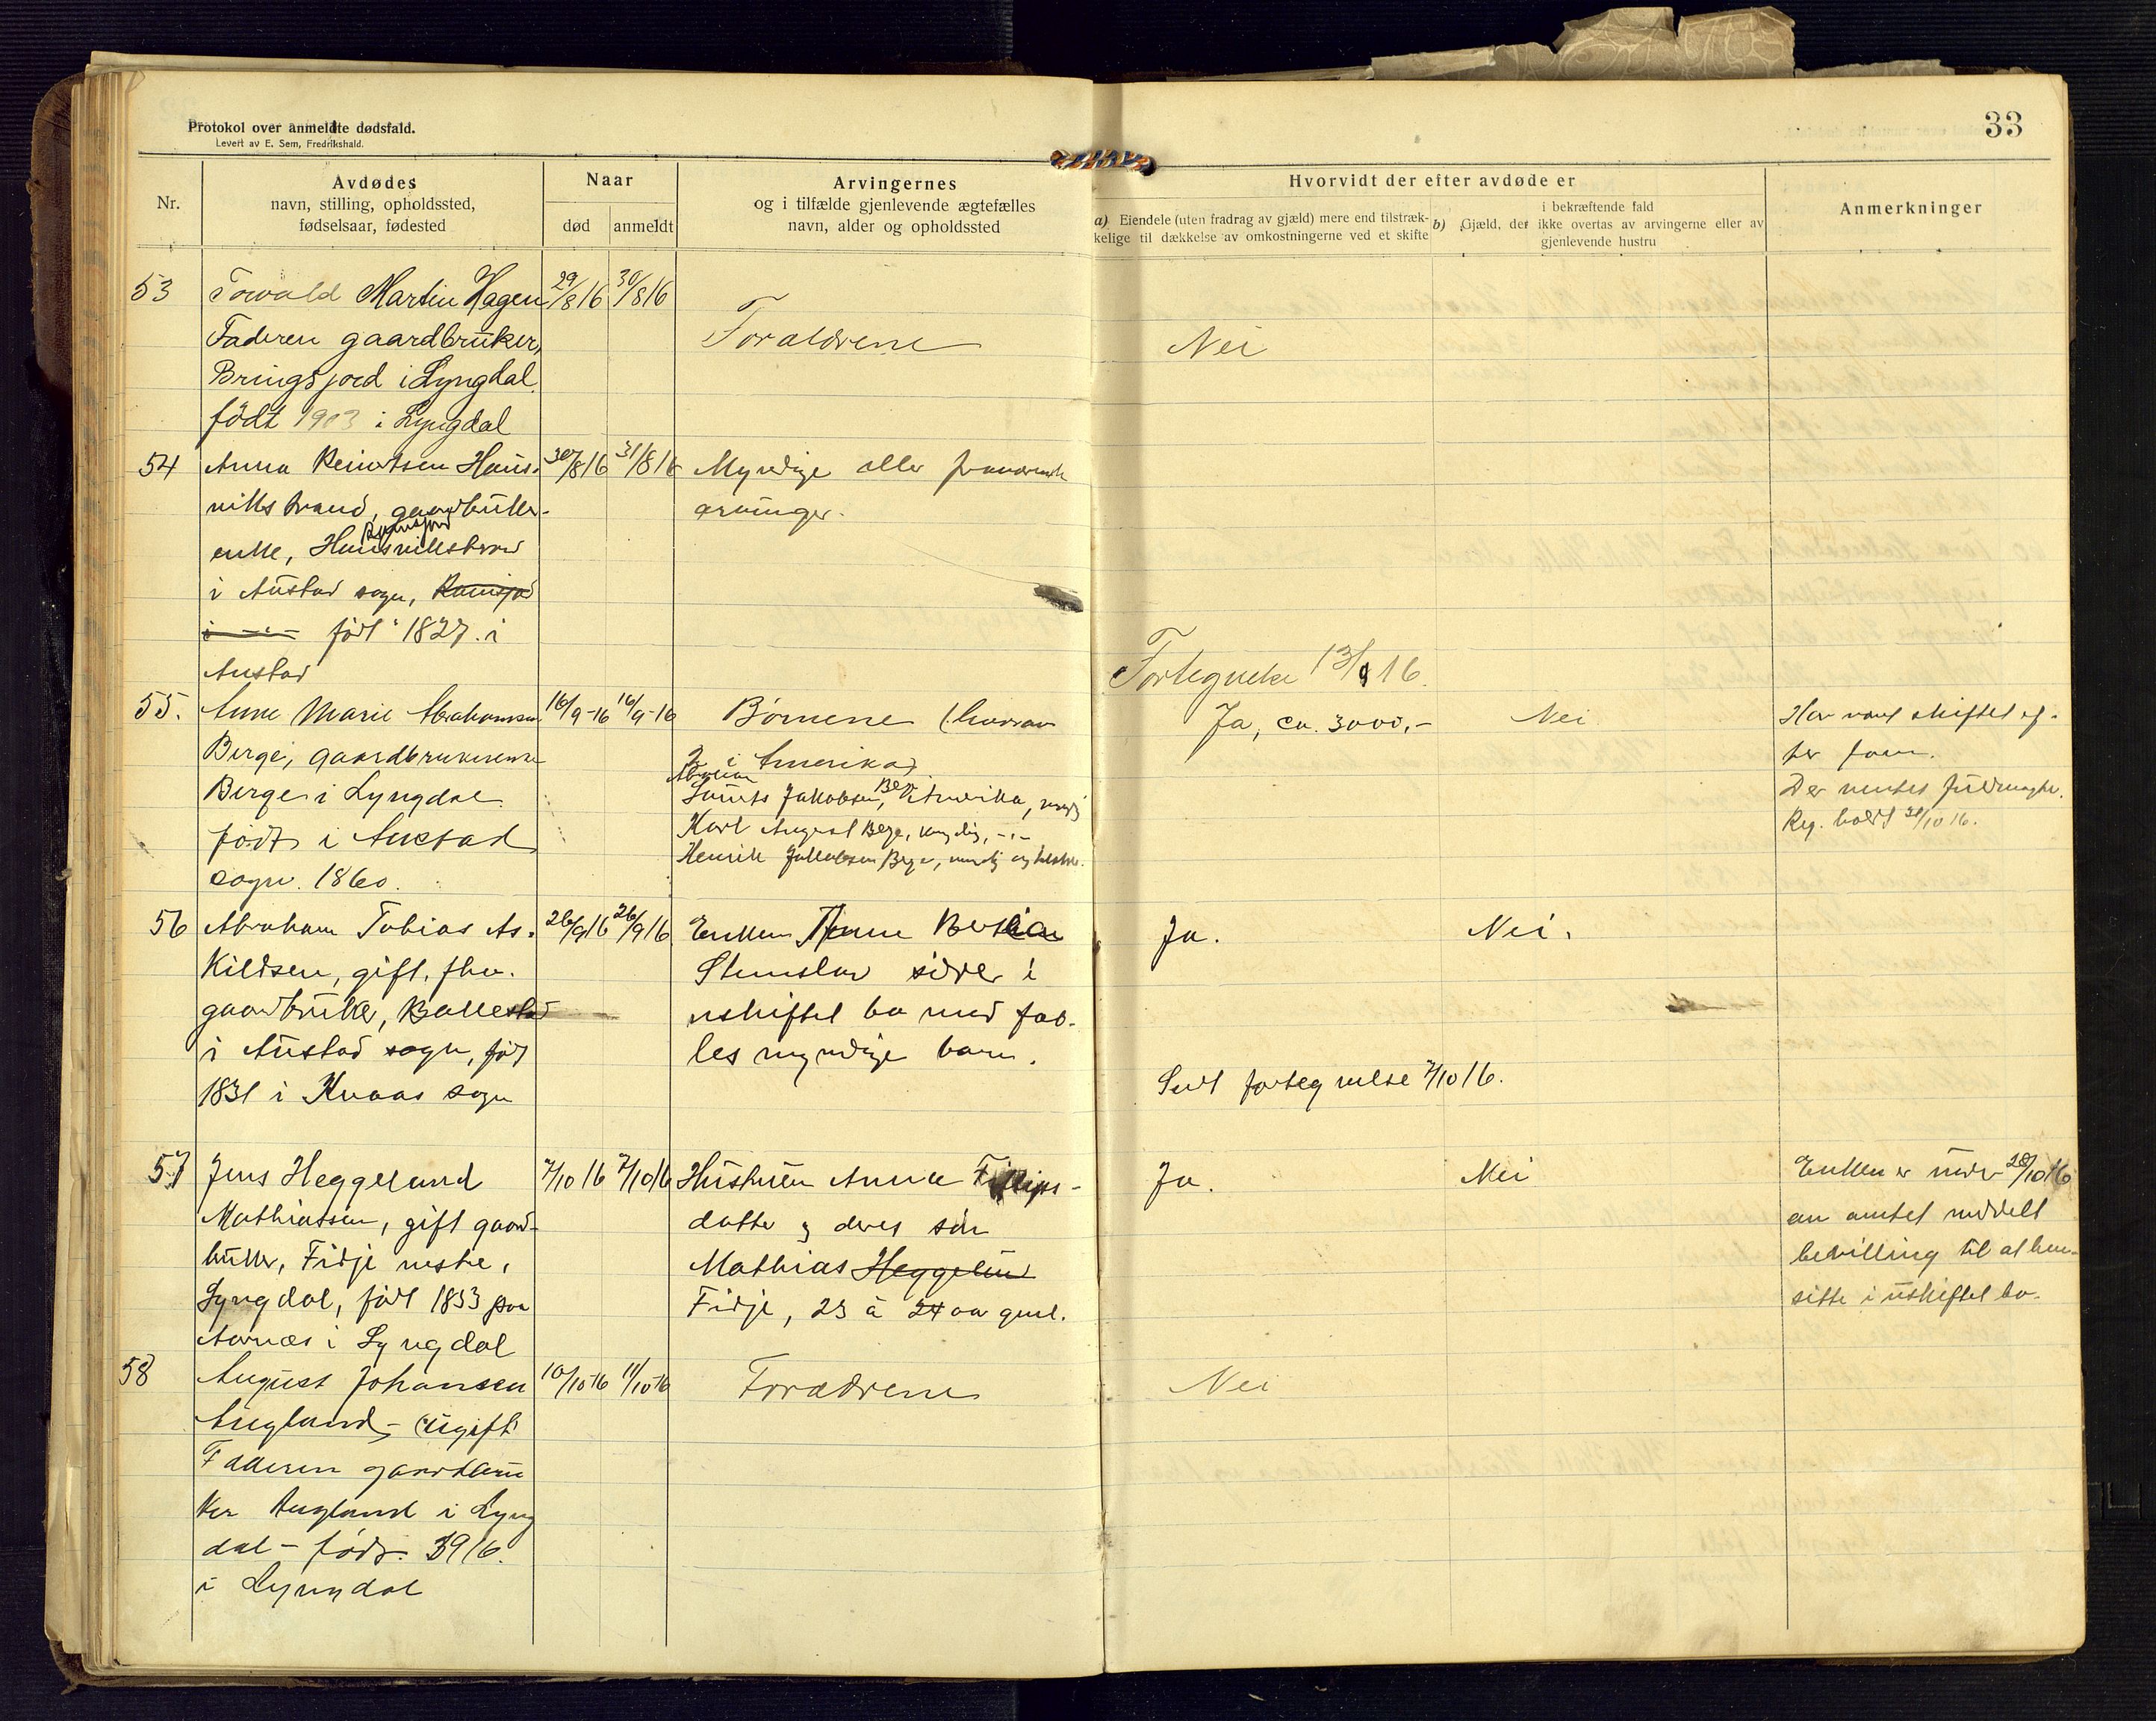 Protokol over anmeldte dødsfald.
Levert av E. Sem, Fredrikshald.
33
Nr.
Avdødes
navn, stilling, opholdssted,
fødselsaar, fødested
Naar
død
anmeldt
Arvingernes
og i tilfælde gjenlevende ægtefælles
navn, alder og opholdssted
Hvorvidt der efter avdøde er
a) Eiendele (uten fradrag av gjæld) mere end tilstræk-
kelige til dækkelse av omkostningerne ved et skifte
i bekræftende fald
b) Gjæld, der ikke overtas av arvingerne eller av
gjenlevende hustru
Anmerkninger
53
Torvald Martin Hagen
Faderen gaardbruker,
Bringsjord i Lyngdal.
født 1903 i Lyngdal
29/8 16
30/8 16
Forældrene
Nei
54
Anna Reinertsen Haus-
viksstrand, gaardbruker-
enke, Hausviksstrand
i Austad sogn,
født 1827. i
Austad
30/8 16
31/8 16
Myndige
arvinger.
Fortegnelse 13/9 16.
55.
Anne Marie Abrahamsen
Berge, gaardbrukerenke
Berge i Lyngdal
født i Austad
sogn. 1860.
16/9-16
16/9-16
Børnene (hvorav
2 i Amerika)
Jakobsen Berge, Amerika, myndig
Karl August Berge, myndig, -"-
Henrik Jakobsen Berge, myndig
Ja, ca. 3000,-
Nei
Har været skiftet ef-
ter faren.
Der ventes fuldmagter.
Reg. holdt /10 16.
56
Abraham Tobias As-
kildsen, gift, fhv.
gaardbruker, Ballestad
i Austad sogn, født
1831 i Kvaas sogn
26/9 16
26/9 16
Enken Anne
sidder i
uskiftet bo med fæl-
les myndige barn.
Ja.
Nei.
Sendt fortegnelse 7/10 16.
57
Jens Heggelund
Mathiassen, gift gaard-
bruker, Fidje nestre,
Lyngdal, født 1853 paa
Aarnæs i Lyngdal
7/10 16
7/10 16
Hustruen Anna Fillips-
datter og deres søn
Mathias Heggelund
Fidje, 23 à 24 aar gml.
Ja.
Nei
Enken er under 28/10 16
av amtet meddelt
bevilling til at hen-
sitte i uskiftet bo.
58
August Johansen
Augland - (ugift
Faderen gaardbru
ker Augland i Lyng
dal - født. 1916.
i Lyngdal
10/10-16
11/10-16
Forældrene
Nei